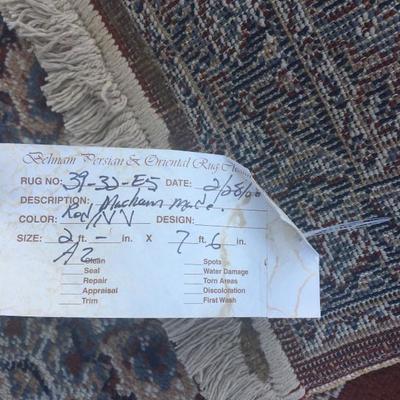 Behnam Persian & Oriental Rug
RUG NO: 39-30-E5 DATE: 2/28/
DESCRIPTION: Machin Made
COLOR: Red/NV DESIGN:
SIZE: 2 ft. - in. X 7 ft. 6 in.
A2
Clean Spots
Seal Water Damage
Repair Torn Areas
Appraisal Discoloration
Trim First Wash